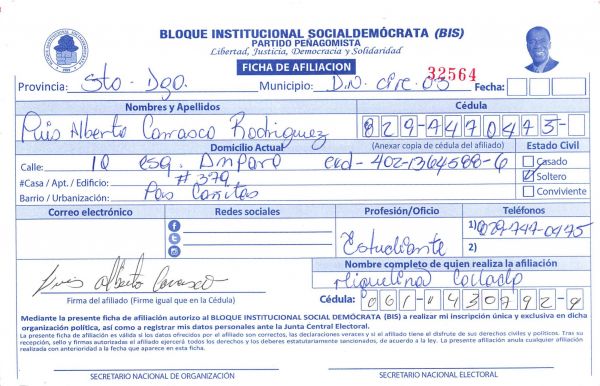 BLOQUE INSTITUCIONAL SOCIALDEMÓCRATA (BIS)
PARTIDO PEÑAGOMISTA
Libertad, Justicia, Democracia y Solidaridad
FICHA DE AFILIACION
32564
Provincia: Sto. Dgo. Municipio: D.N. circ. 03 Fecha:
Nombres y Apellidos Cédula
Luis Alberto Carrasco Rodriguez 829-4470475-
(Anexar copia de cédula del afiliado)
Domicilio Actual Estado Civil
Calle: 10 esq. Amparo ced-402-1364588-6 Casado
#Casa / Apt. / Edificio: #379 Soltero
Barrio / Urbanización: Los Cañitas Conviviente
Correo electrónico Redes sociales Profesión/Oficio Teléfonos
1) 829-747-0475
Estudiante 2)
Nombre completo de quien realiza la afiliación
Miguelina Collado
Luis Alberto Carrasco
Firma del afiliado (Firme igual que en la Cédula) Cédula: 061-0430792-8
Mediante la presente ficha de afiliación autorizo al BLOQUE INSTITUCIONAL SOCIAL DEMÓCRATA (BIS) a realizar mi inscripción única y exclusiva en dicha
organización política, así como a registrar mis datos personales ante la Junta Central Electoral.
La presente ficha de afiliación es válida si los datos ofrecidos por el afiliado son correctos, las declaraciones veraces y si el afiliado tiene el disfrute de sus derechos civiles y políticos. Tras su
recepción, sello y firmas autorizadas el afiliado ejercerá todos los derechos y los deberes estatutariamente sancionados, de acuerdo a la ley. La presente afiliación anula cualquier afiliación
realizada con anterioridad a la fecha que aparece en esta ficha.
SECRETARIO NACIONAL DE ORGANIZACIÓN SECRETARIO NACIONAL ELECTORAL